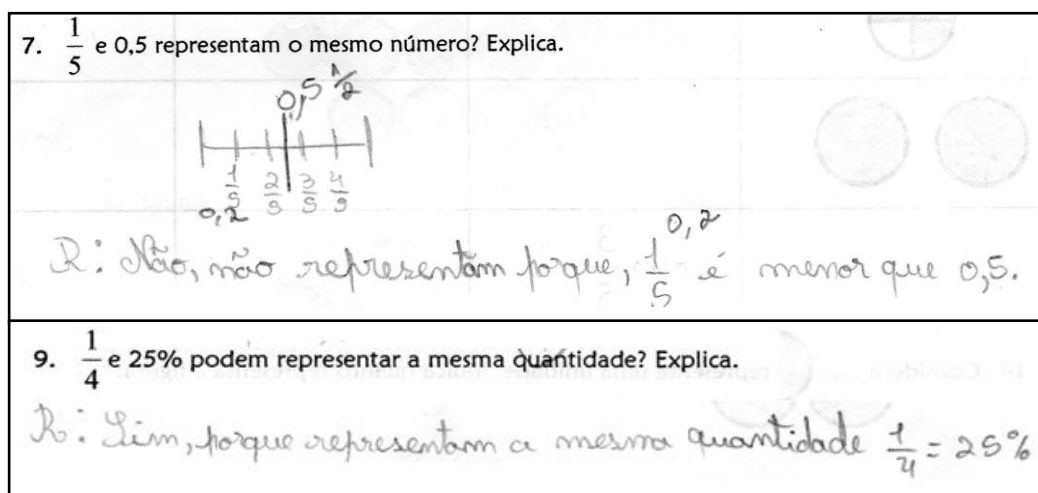 7. 1/5 e 0,5 representam o mesmo número? Explica.
0,5 1/2
1/5 2/5 3/5 4/5
0,2
0,2
R: Não, não representam porque, 1/5 é menor que 0,5.
9. 1/4 e 25% podem representar a mesma quantidade? Explica.
R: Sim, porque representam a mesma quantidade 1/4 = 25%